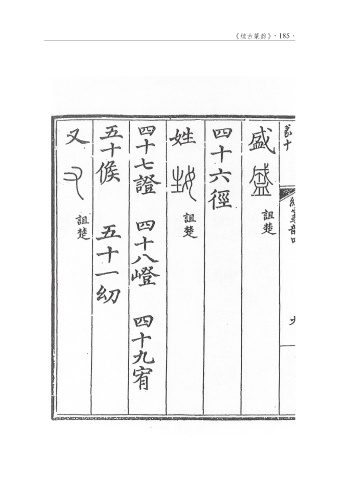 《續古篆韵》·185·
盛 詛楚
四十六徑
姓 詛楚
四十七證 四十八嶝 四十九宥
五十候 五十一幼
又 詛楚